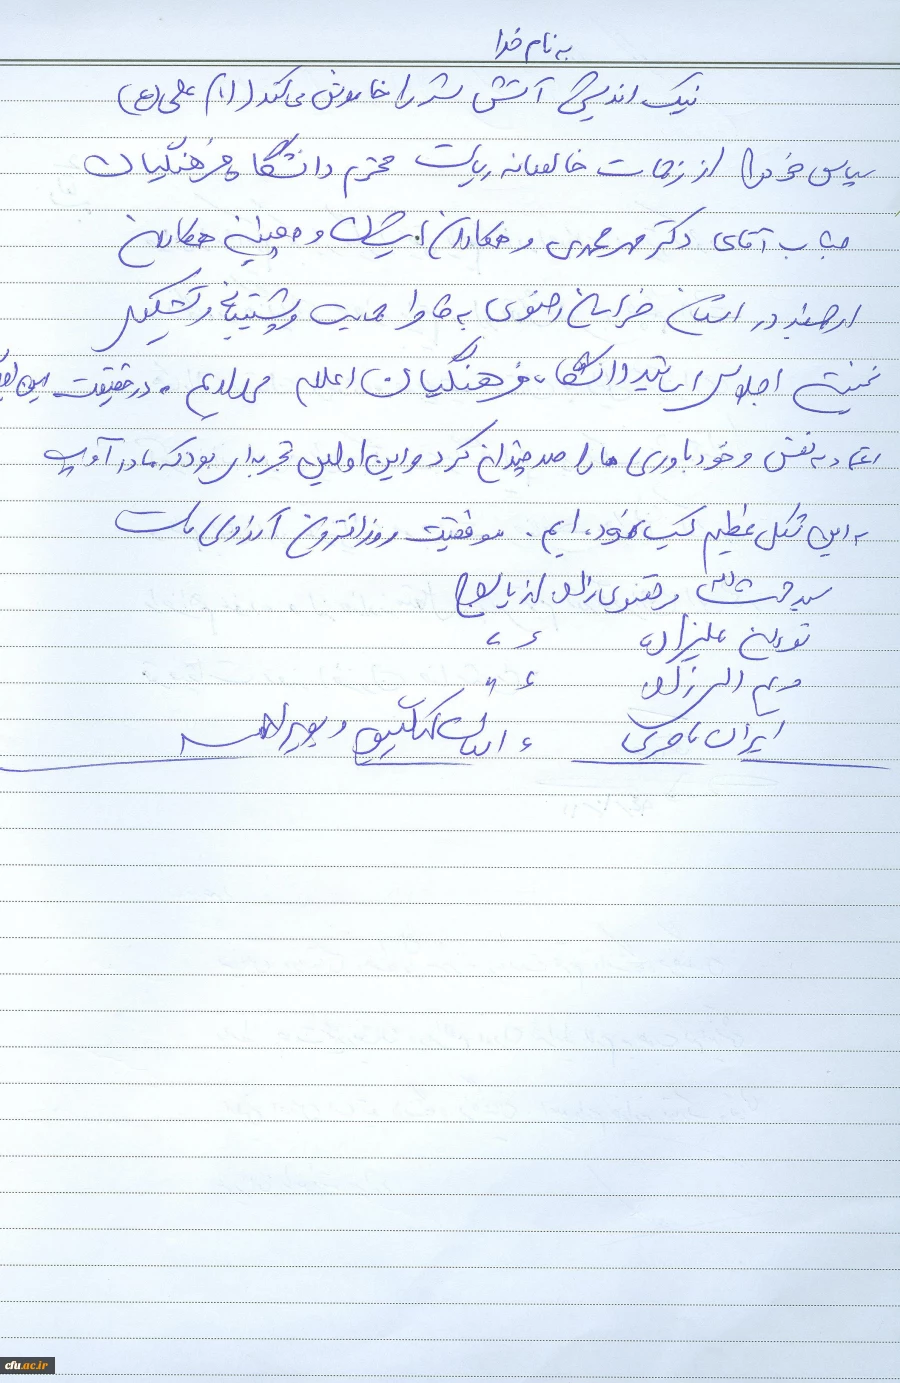 به نام خدا
نیک اندیشی آتش شر را خاموش می‌کند (امام علی (ع)
سپاس خود را از زحمات خالصانه ریاست محترم دانشگاه فرهنگیان
جناب آقای دکتر مهرمحمدی و همکاران ایشان و همچنین همکاران
ارجمند در استان خراسان رضوی به خاطر حمایت و پشتیبانی و تشکیل
نخستین اجلاس اساتید دانشگاه فرهنگیان اعلام می‌داریم. در حقیقت این
اعتماد به نفس و خودباوری ما را صد چندان کرد و این اولین تجربه‌ای بود که ما در
به این شکل عظیم کسب نموده‌ایم. موفقیت روزافزون آرزوی ماست
سید رضوی از یاسوج
علیزاده " "
مریم " "
ایران ناصری " استان کهگیلویه و بویراحمد
cfu.ac.ir